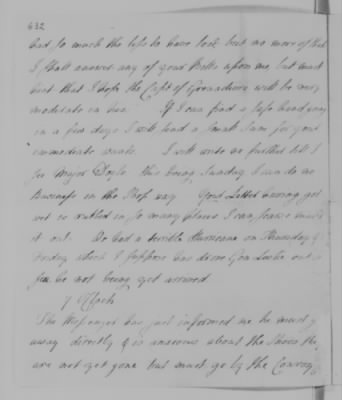 632
had so much the less to have lost but no more of that
I shall answer any of your Bills upon me but must
hint that I hope the Capt of Grenadiers will be very
moderate in his If I can find a safe hand going
in a few days I will send a small sum for your
immediate wants. I will write no further till I
see Major Doyle this being Sunday I can do no
Business in the Shop way Your Letter having got
wet is rubbed in so many places I can scarce make
it out. We had a terrible Hurricane on Thursday &
Friday which I suppose has drove Gen Leslie out to
sea he not being yet arrived
7 oClock
The Messenger has just informed me he must go
away directly & is anxious about the Shoes they
are not yet gone but must go by the Convoy